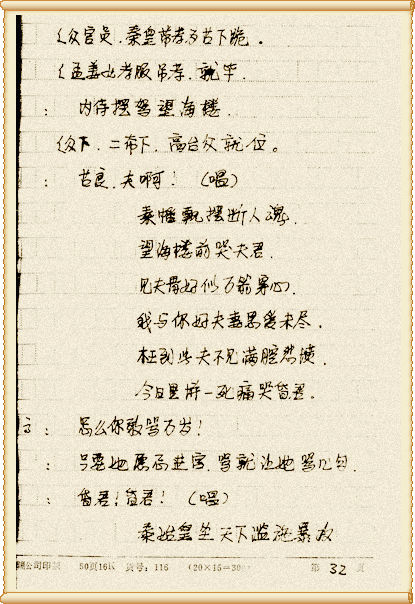 (众官员、秦皇带孝不甘下跪。
(孟姜女孝服吊孝，就毕
： 内侍摆驾望海楼.
(众下，二布下，高台众就位。
： 杞良，夫啊！（唱）
秦幡飘摆断人魂.
望海楼前哭夫君.
见夫骨好似万箭穿心.
我与你好夫妻恩爱未尽.
枉到此夫不见满腔愁愤.
今日里拼一死痛哭昏君。
： 怎么你敢骂万岁！
： 只要她愿而进宫，骂就让她骂几句.
： 昏君！昏君！（唱）
秦始皇坐天下滥施暴政
公司印 50页16K 页号：116 (20×15=300) 第 32 页